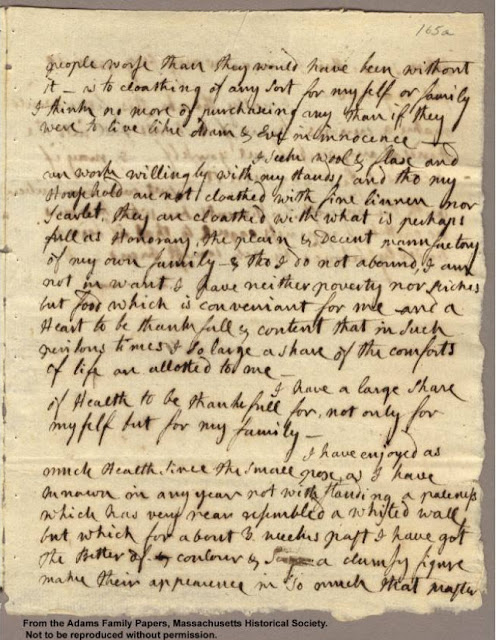 165a
people worse than they would have been without
it — as to cloathing of any sort for myself or family
I think no more of purchasing any than if they
were to live like Adam & Eve in innocence —
I seek wool & flax and
can work willingly with my Hands, and tho my
Household are not cloathed with fine linnen nor
scarlet, they are cloathed with what is perhaps
full as Honorary, the plain & decent manufactory
of my own family — & tho I do not abound, I am
not in want I have neither poverty nor Riches
but food which is conveniant for me and a
Heart to be thankfull & content that in such
perilous times & so large a share of the comforts
of life are allotted to me —
I have a large Share
of Health to be thankfull for, not only for
myself but for my family —
I have enjoyed as
much Health since the small pox, as I have
known in any year not with standing a paleness
which has very near resembled a whited wall
but which for about 3 weeks past I have got
the Better of & coulour & a clumsy figure
make their appearence in so much that master
From the Adams Family Papers, Massachusetts Historical Society.
Not to be reproduced without permission.